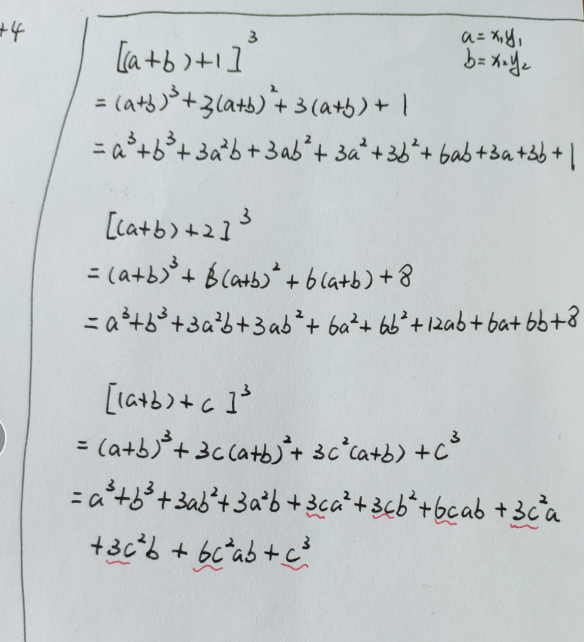 +4
[(a+b)+1]³
a=x₁y₁
b=x₂y₂
=(a+b)³+3(a+b)²+3(a+b)+1
=a³+b³+3a²b+3ab²+3a²+3b²+6ab+3a+3b+1
[(a+b)+2]³
=(a+b)³+6(a+b)²+6(a+b)+8
=a³+b³+3a²b+3ab²+6a²+6b²+12ab+6a+6b+8
[(a+b)+c]³
=(a+b)³+3c(a+b)²+3c²(a+b)+c³
=a³+b³+3ab²+3a²b+3ca²+3cb²+6cab+3c²a
+3c²b+6c²ab+c³